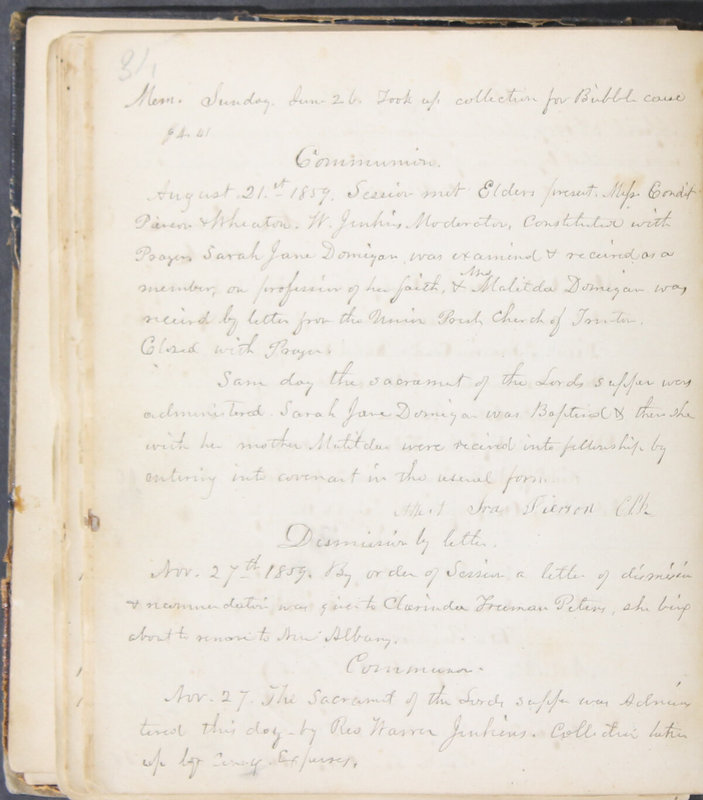 31
Mem. Sunday. June 26. Took up collection for Bubble cause
$4.41
Communion.
August 21.st 1859. Session met Elders present. Mess. Condit
Pierson & Wheaton. W. Jinkins Moderator, Constituted with
Prayer. Sarah Jane Domigan was examind & received as a
member, on profession of her faith, & Mrs Matilda Domigan was
recievd by letter from the Union Presb Church of Truro.
Closed with Prayer.
Sam day the sacramet of the Lords supper was
administered. Sarah Jane Domigan was Baptised & then she
with her mother Matilda were recived into fellowship by
entering into covenant in the usual form.
Attest Ira Pierson Clk
Dismission by letter.
Nov. 27th 1859. By order of Session a letter of dismission
& recommendation was given to Clarinda Freeman Peters, she being
about to remove to New Albany.
Communion.
Nov. 27. The Sacramet of the Lords supper was Adminis
tered this day by Rev Warren Jinkins. Collection taken
up by Expenses.